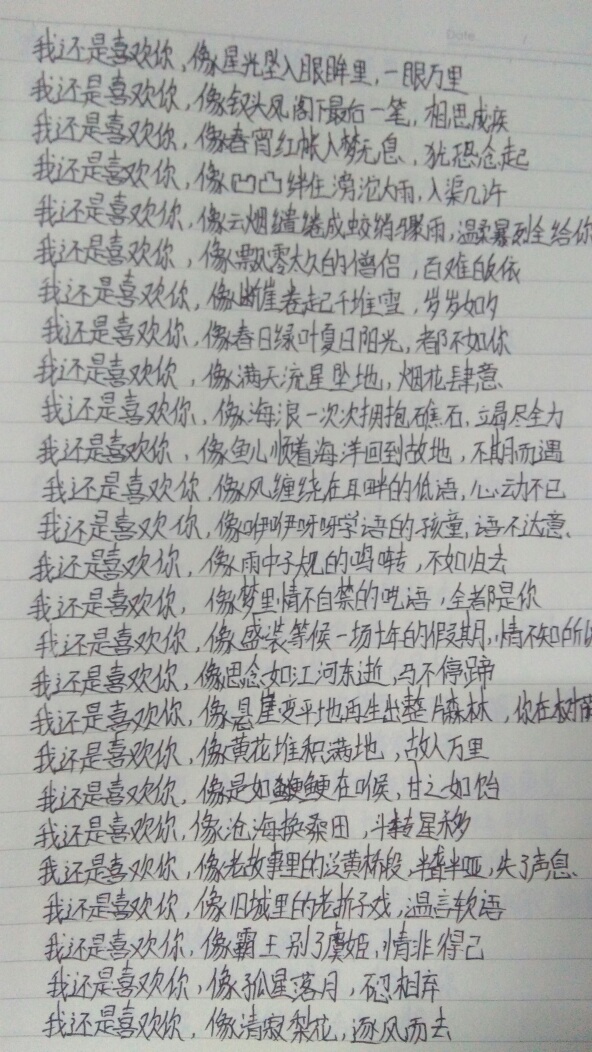 Date
我还是喜欢你，像星光坠入眼眸里，一眼万里
我还是喜欢你，像钗头凤阁下最后一笔，相思成疾
我还是喜欢你，像春宵红帐入梦无息，犹恐念起
我还是喜欢你，像凹凸绊住滂沱大雨，入渠几许
我还是喜欢你，像云烟缱绻成蛟绡骤雨，温柔暴烈全给你
我还是喜欢你，像飘零太久的僧侣，百难皈依
我还是喜欢你，像断崖卷起千堆雪，岁岁如夕
我还是喜欢你，像春日绿叶夏日阳光，都不如你
我还是喜欢你，像满天流星坠地，烟花肆意
我还是喜欢你，像海浪一次次拥抱礁石，竭尽全力
我还是喜欢你，像鱼儿顺着海洋回到故地，不期而遇
我还是喜欢你，像风缠绕在耳畔的低语，心动不已
我还是喜欢你，像咿咿呀呀学语的孩童，语不达意、
我还是喜欢你，像雨中子规的鸣啭，不如归去
我还是喜欢你，像梦里情不自禁的呓语，全都是你
我还是喜欢你，像盛装等候一场十年的假期，情不知所
我还是喜欢你，像思念如江河东逝，马不停蹄
我还是喜欢你，像悬崖变平地再生出整片森林，你在树
我还是喜欢你，像黄花堆积满地，故人万里
我还是喜欢你，像是如鲠在喉，甘之如饴
我还是喜欢你，像沧海换桑田，斗转星移
我还是喜欢你，像老故事里的泛黄桥段，半聋半哑，失了声息、
我还是喜欢你，像旧城里的老折子戏，温言软语
我还是喜欢你，像霸王别了虞姬，情非得已
我还是喜欢你，像孤星落月，忍相弃
我还是喜欢你，像清寂梨花，逐风而去